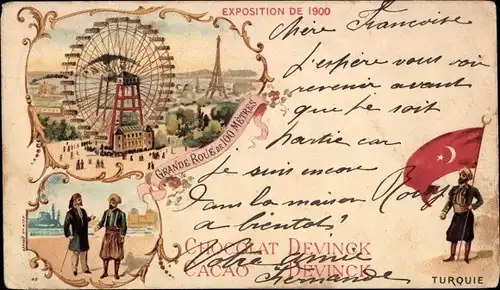 EXPOSITION DE 1900
Chère Françoise
J'espère vous voir
revenir avant
que je soit
partie car
je suis encore
dans la maison
a bientôt
Votre amie
Fernande
GRANDE ROUE DE 100 MÈTRES
CHOCOLAT DEVINCK
CACAO DEVINCK
TURQUIE